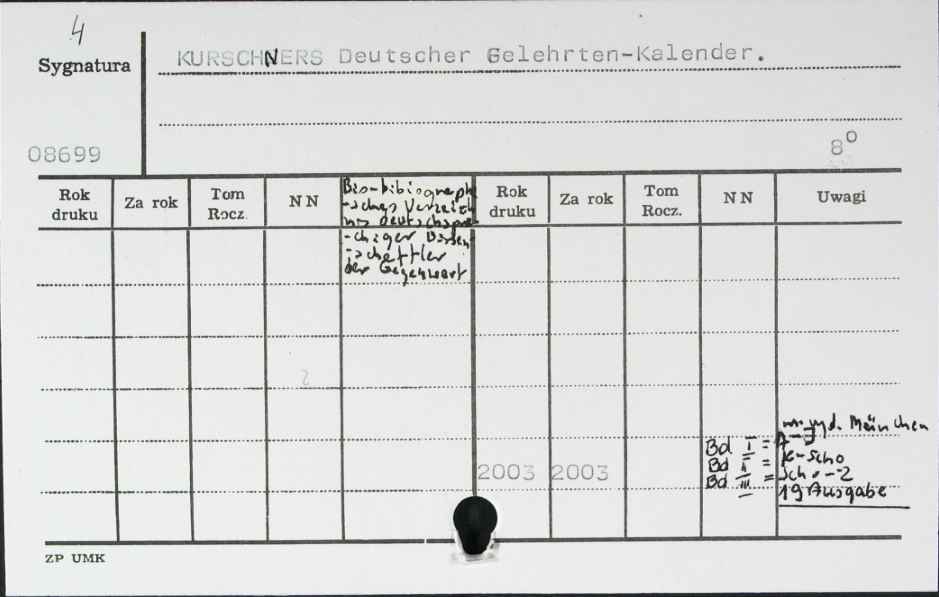 4
Sygnatura
KURSCHNERS Deutscher Gelehrten-Kalender.
08699
8°
Rok druku
Za rok
Tom Rocz.
NN
Bio-bibiograph
-isches Verzeich
nis deutschspra
-chiger Wissen
-schaftler
der Gegenwart
Rok druku
Za rok
Tom Rocz.
NN
Uwagi
München
2003 2003
Bd I = A-J
Bd II = Ke-Scho
Bd III = Scho-Z
19 Ausgabe
ZP UMK